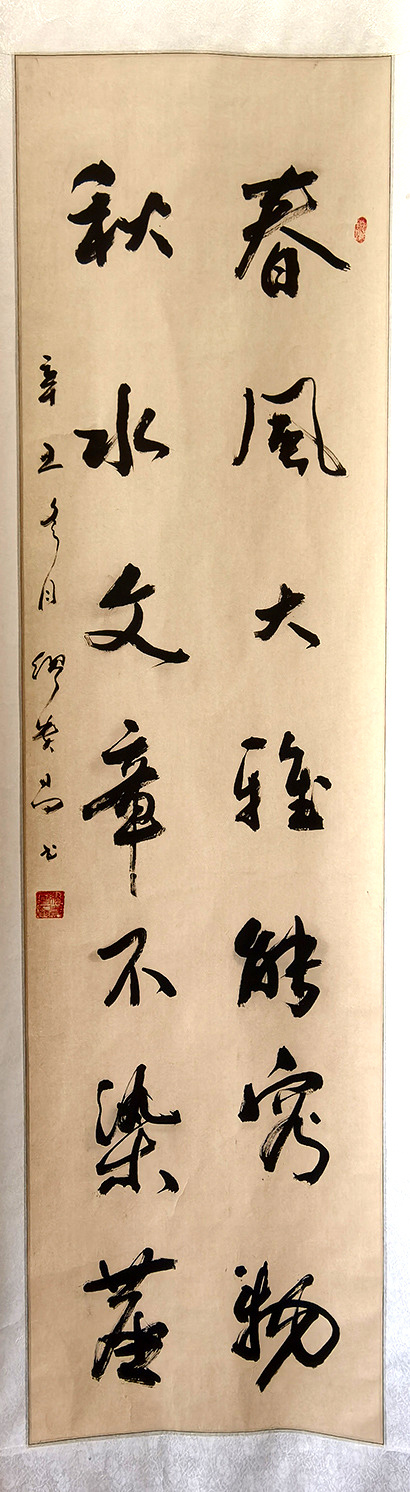 春風大雅能容物
秋水文章不染塵
辛丑冬月繆貴昌书